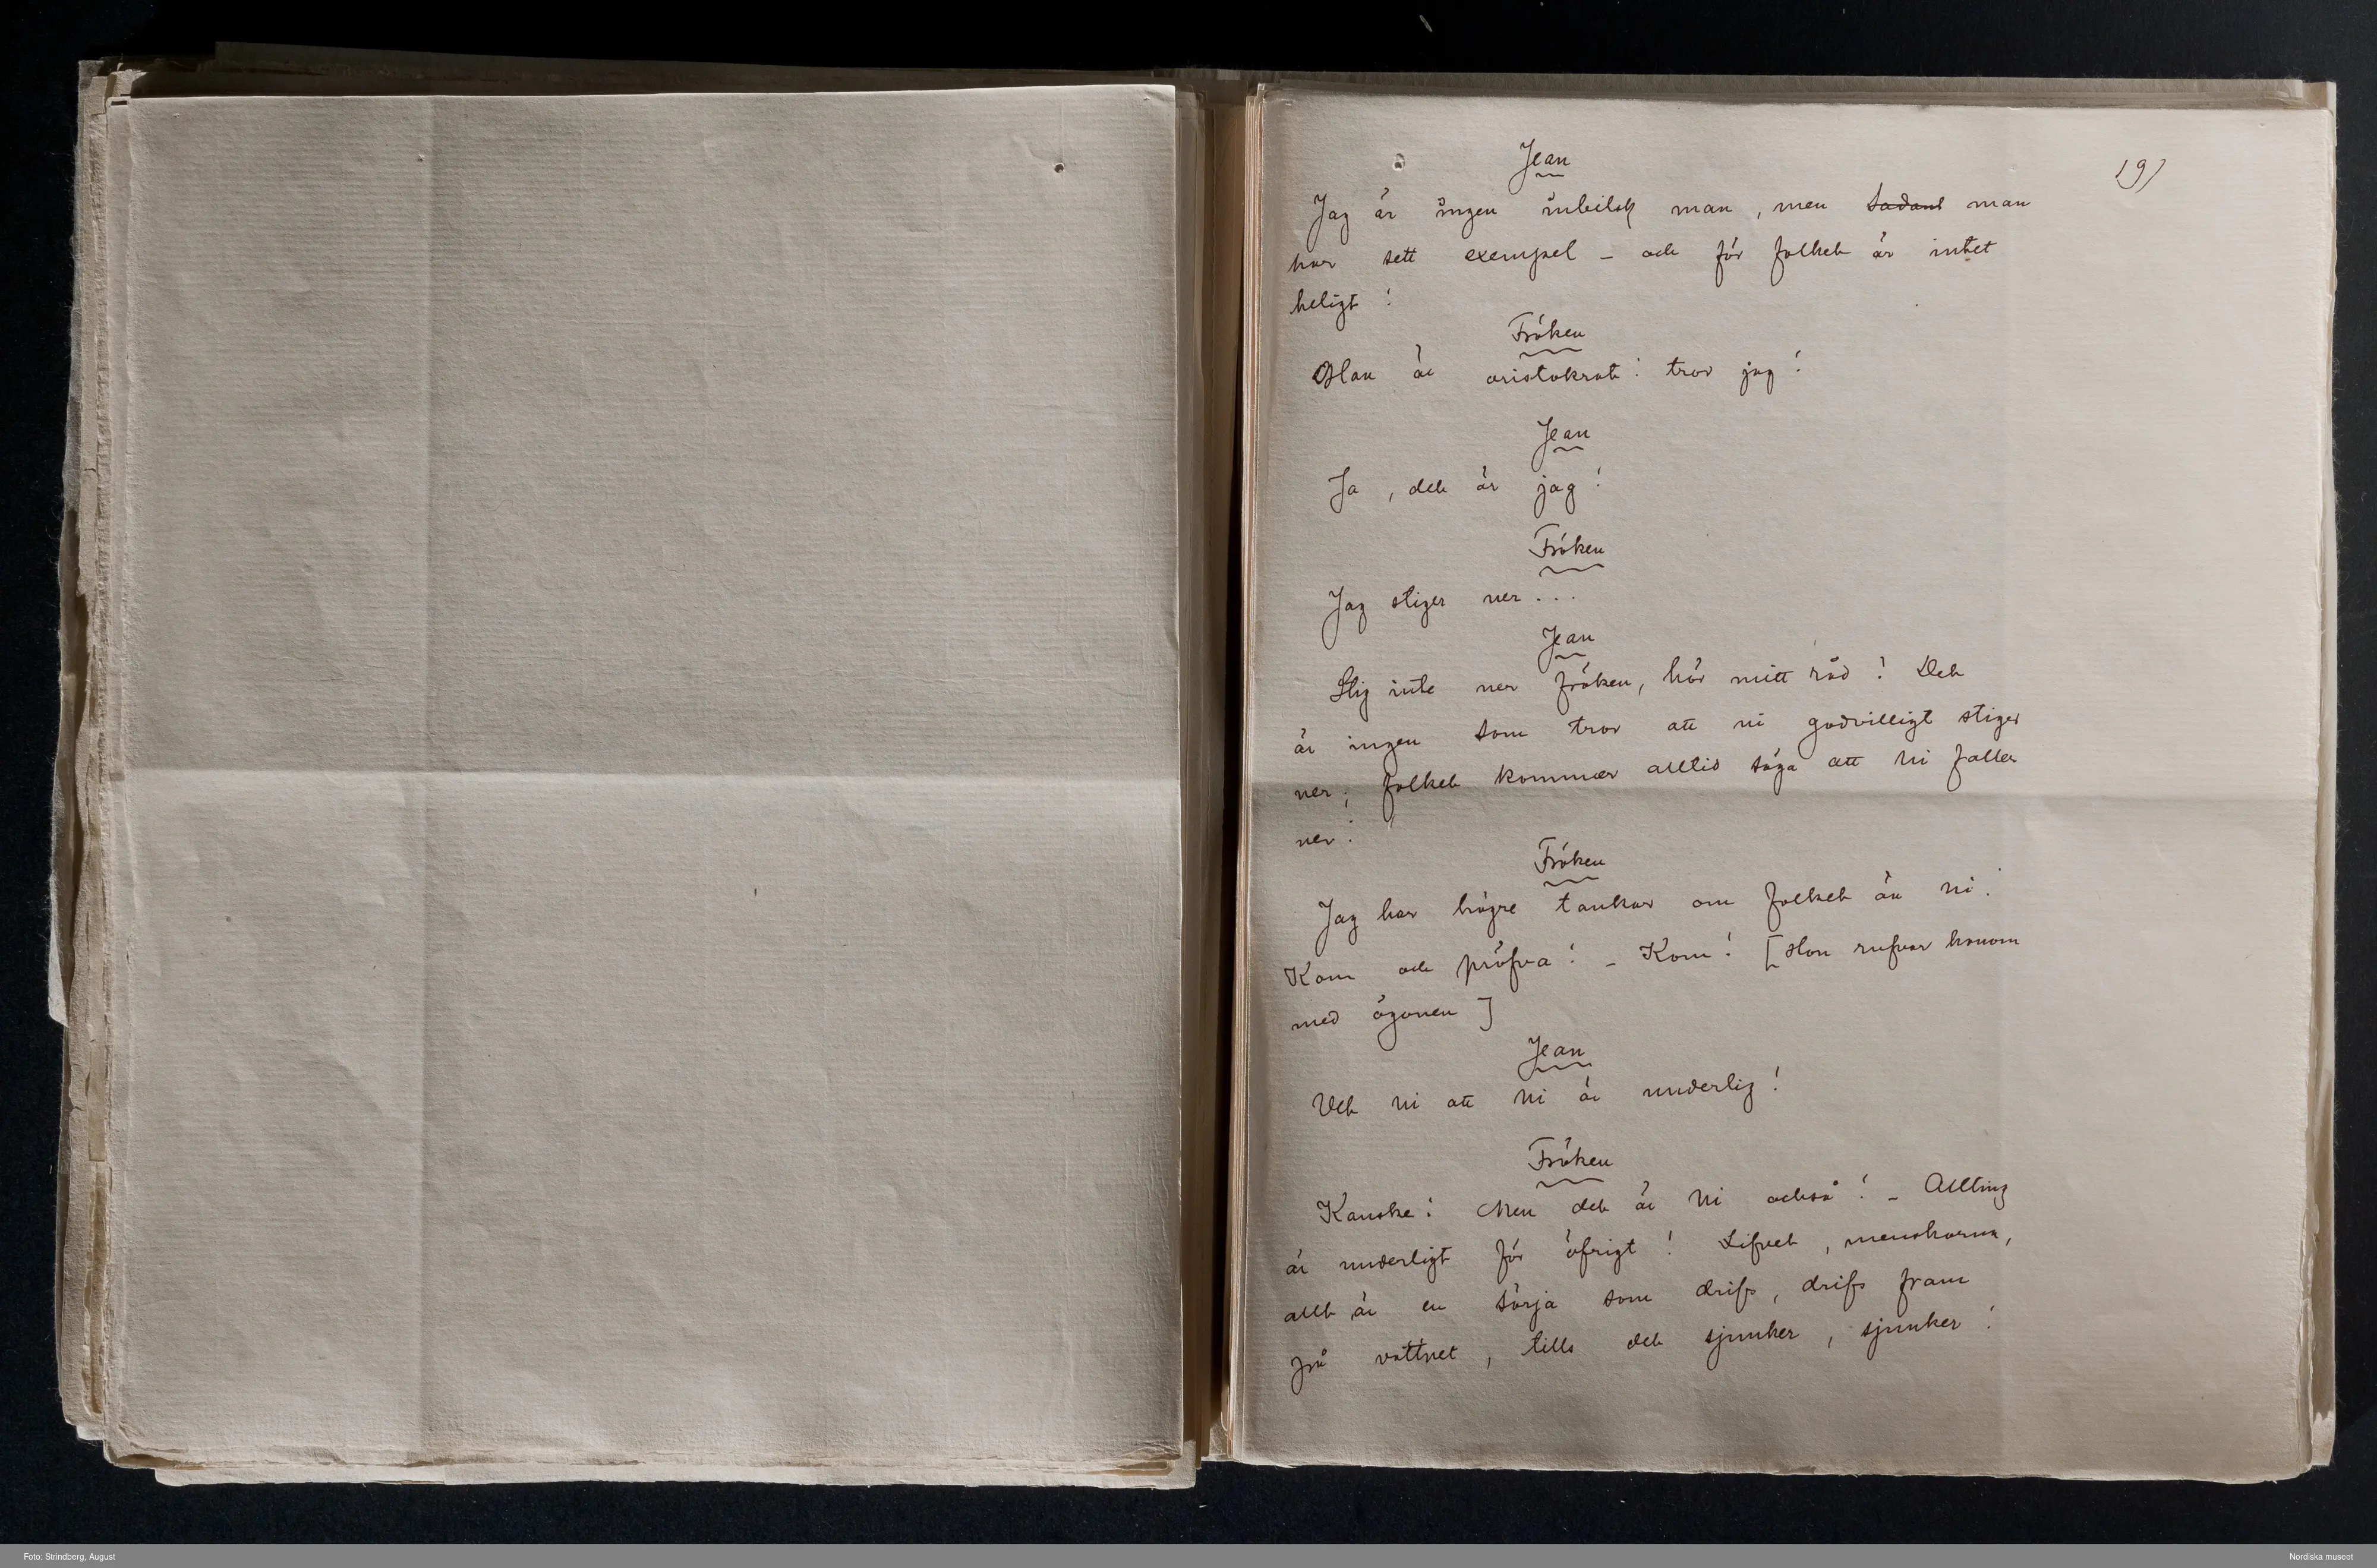 19)
Jean
Jag är ingen inbilsk man, men sådant man
har sett exempel – och för folket är intet
heligt!
Fröken
Han är aristokrat! tror jag!
Jean
Ja, det är jag!
Fröken
Jag stiger ner...
Jean
Stig inte ner fröken, hör mitt råd! Det
är ingen som tror att ni godvilligt stiger
ner; folket kommer alltid säga att ni faller
ner!
Fröken
Jag har högre tankar om folket än ni!
Kom och pröfva! – Kom! [Hon rufvar honom
med ögonen]
Jean
Vet ni att ni är underlig!
Fröken
Kanske! Men det är ni också! – Allting
är underligt för öfrigt! Lifvet, menskorna,
allt är en sörja som drifs, drifs fram
på vattnet, tills det sjunker, sjunker!
Foto: Strindberg, August
Nordiska museet